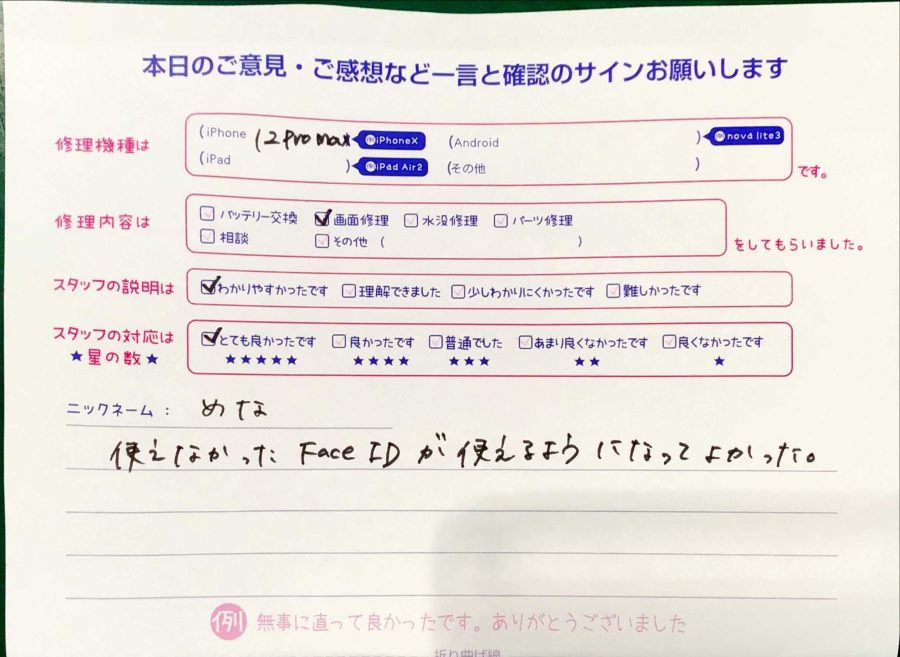 本日のご意見・ご感想など一言と確認のサインお願いします
修理機種は (iPhone 12 Pro max iPhoneX (Android ) nova lite3
(iPad ) iPad Air2 (その他 ) です。
修理内容は バッテリー交換 画面修理 水没修理 パーツ修理
相談 その他 ( ) をしてもらいました。
スタッフの説明は わかりやすかったです 理解できました 少しわかりにくかったです 難しかったです
スタッフの対応は とても良かったです 良かったです 普通でした あまり良くなかったです 良くなかったです
★星の数★ ★★★★★ ★★★★ ★★★ ★★ ★
ニックネーム: めな
使えなかった Face ID が使えるようになってよかった。
例 無事に直って良かったです。ありがとうございました
折り曲げ線